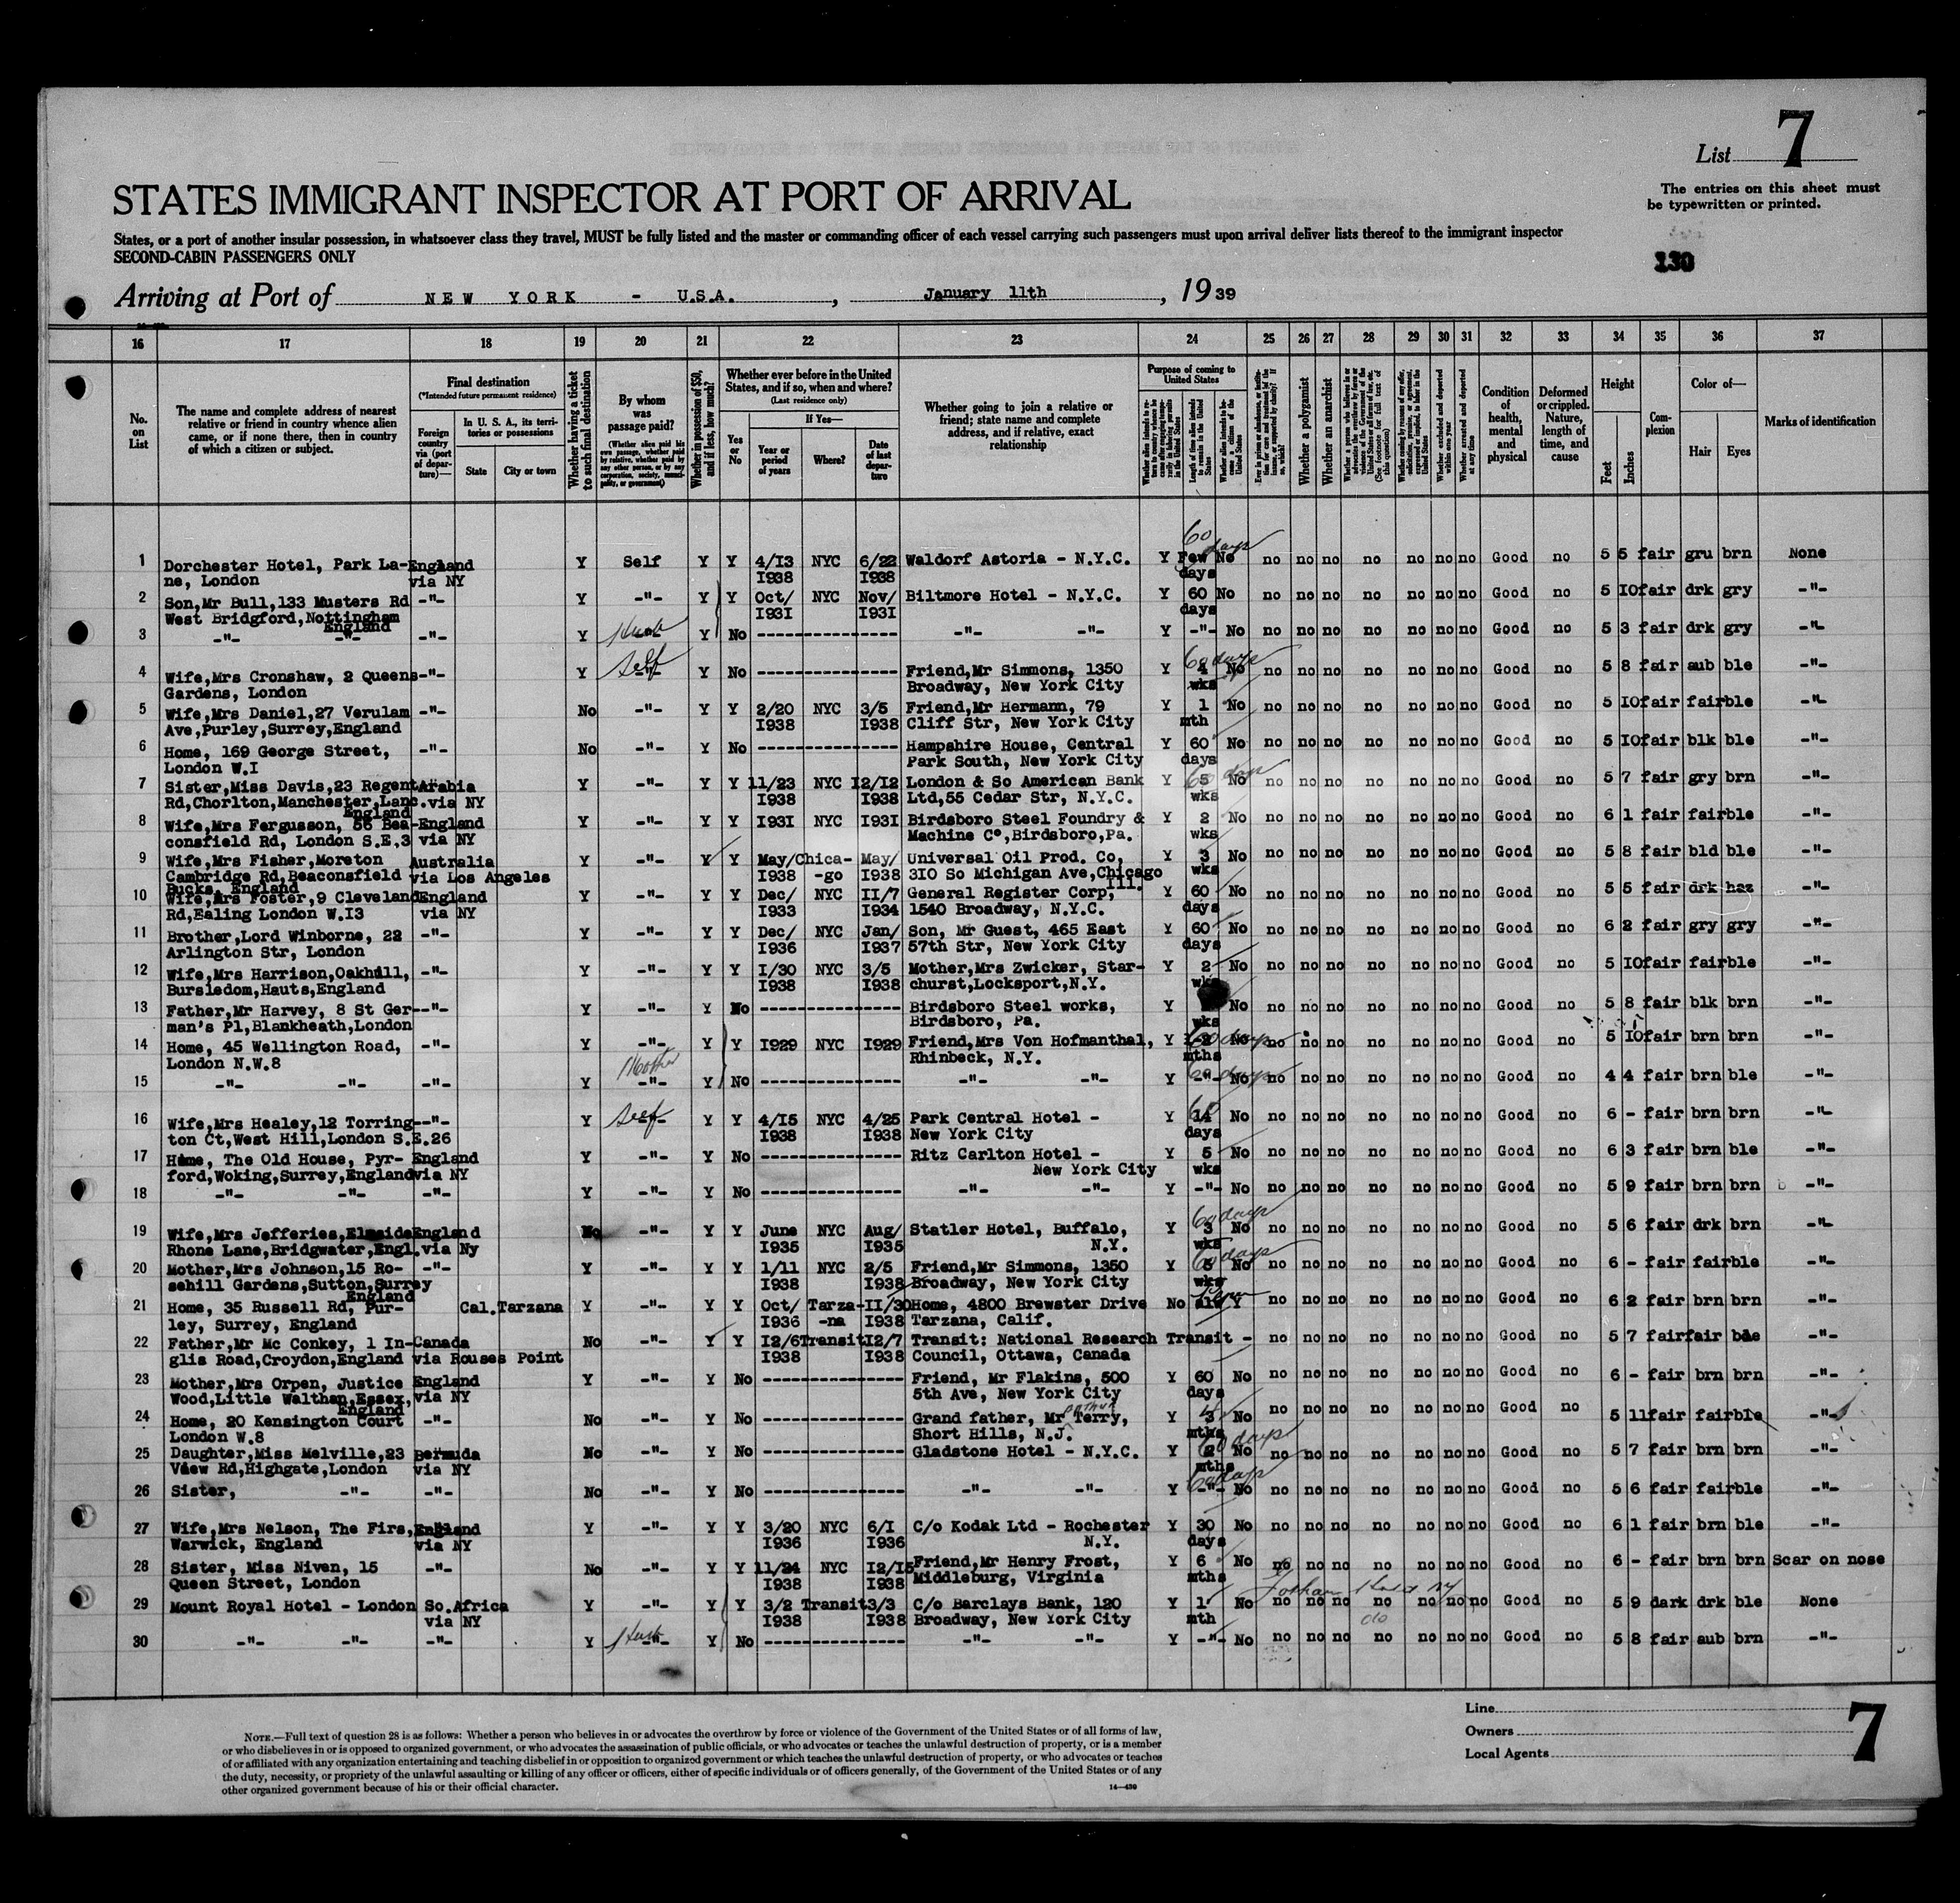 List 7
The entries on this sheet must
be typewritten or printed.
STATES IMMIGRANT INSPECTOR AT PORT OF ARRIVAL
States, or a port of another insular possession, in whatsoever class they travel, MUST be fully listed and the master or commanding officer of each vessel carrying such passengers must upon arrival deliver lists thereof to the immigrant inspector
SECOND-CABIN PASSENGERS ONLY
130
Arriving at Port of NEW YORK - U.S.A. , January 11th , 1939
16 17 18 19 20 21 22 23 24 25 26 27 28 29 30 31 32 33 34 35 36 37
No. on List
The name and complete address of nearest relative or friend in country whence alien came, or if none there, then in country of which a citizen or subject.
Final destination
(*Intended future permanent residence)
Foreign country via (port of departure)—
In U. S. A., its territories or possessions
State City or town
Whether having a ticket to such final destination
By whom was passage paid?
(Whether alien paid his own passage, whether paid by relative, whether paid by any other person, or by any corporation, society, municipality, or government)
Whether in possession of $50, and if less, how much?
Whether ever before in the United States, and if so, when and where?
(Last residence only)
Yes or No
If Yes—
Year or period of years Where? Date of last departure
Whether going to join a relative or friend; state name and complete address, and if relative, exact relationship
Purpose of coming to United States
Length of time alien intends to remain in the United States
Whether alien intends to become a citizen of the United States
Whether a polygamist
Whether an anarchist
Whether excluded and deported within one year
Whether arrested and deported at any time
Condition of health, mental and physical
Deformed or crippled. Nature, length of time, and cause
Height
Feet Inches
Complexion
Color of—
Hair Eyes
Marks of identification
60 days
1 Dorchester Hotel, Park La- England Y Self Y Y 4/13 NYC 6/22 Waldorf Astoria - N.Y.C. Y Few No no no no no no no no Good no 5 5 fair gru brn None
ne, London via NY I938 I938 days
2 Son,Mr Bull,133 Musters Rd -"- Y -"- Y Y Oct/ NYC Nov/ Biltmore Hotel - N.Y.C. Y 60 No no no no no no no no Good no 5 IO fair drk gry -"-
West Bridgford,Nottingham I93I I93I days
England
3 -"- -"- -"- Y -"- Y No ---------------- -"- -"- Y -"- No no no no no no no no Good no 5 3 fair drk gry -"-
Self 60 days
4 Wife,Mrs Cronshaw, 2 Queens -"- Y -"- Y No ---------------- Friend,Mr Simmons, 1350 Y 4 No no no no no no no no Good no 5 8 fair aub ble -"-
Gardens, London Broadway, New York City wks
5 Wife,Mrs Daniel,27 Verulam -"- No -"- Y Y 2/20 NYC 3/5 Friend,Mr Hermann, 79 Y 1 No no no no no no no no Good no 5 IO fair fair ble -"-
Ave,Purley,Surrey,England I938 I938 Cliff Str, New York City mth
6 Home, 169 George Street, -"- No -"- Y No ---------------- Hampshire House, Central Y 60 No no no no no no no no Good no 5 IO fair blk ble -"-
London W.I Park South, New York City days
7 Sister,Miss Davis,23 Regent Arabia Y -"- Y Y 11/23 NYC I2/I2 London & So American Bank Y 5 No no no no no no no no Good no 5 7 fair gry brn -"-
Rd,Chorlton,Manchester,Lanc. via NY I938 I938 Ltd,55 Cedar Str, N.Y.C. wks
England
8 Wife,Mrs Fergusson, 56 Bea- England Y -"- Y Y I93I NYC I93I Birdsboro Steel Foundry & Y 2 No no no no no no no no Good no 6 1 fair fair ble -"-
consfield Rd, London S.E.3 via NY Machine C°,Birdsboro,Pa. wks
9 Wife,Mrs Fisher,Moreton Australia Y -"- Y Y May/ Chica- May/ Universal Oil Prod. Co, Y 3 No no no no no no no no Good no 5 8 fair bld ble -"-
Cambridge Rd,Beaconsfield via Los Angeles I938 -go I938 3IO So Michigan Ave,Chicago wks
Bucks, England Ill.
10 Wife,Mrs Foster,9 Cleveland England Y -"- Y Y Dec/ NYC II/7 General Register Corp, Y 60 No no no no no no no no Good no 5 5 fair drk haz -"-
Rd,Ealing London W.I3 via NY I933 I934 1540 Broadway, N.Y.C. days
11 Brother,Lord Winborne, 22 -"- Y -"- Y Y Dec/ NYC Jan/ Son, Mr Guest, 465 East Y 60 No no no no no no no no Good no 6 2 fair gry gry -"-
Arlington Str, London I936 I937 57th Str, New York City days
12 Wife,Mrs Harrison,Oakhill, -"- Y -"- Y Y I/30 NYC 3/5 Mother,Mrs Zwicker, Star- Y 2 No no no no no no no no Good no 5 IO fair fair ble -"-
Bursledom,Hauts,England I938 I938 churst,Locksport,N.Y. wks
13 Father,Mr Harvey, 8 St Ger- -"- Y -"- Y No ---------------- Birdsboro Steel works, Y No no no no no no no no Good no 5 8 fair blk brn -"-
man's Pl,Blankheath,London Birdsboro, Pa. wks
14 Home, 45 Wellington Road, -"- Y -"- Y Y I929 NYC I929 Friend,Mrs Von Hofmanthal, Y No no no no no no no no Good no 5 IO fair brn brn -"-
London N.W.8 Rhinbeck, N.Y. mths
Mother
15 -"- -"- -"- Y -"- Y No ---------------- -"- -"- Y -"- No no no no no no no no Good no 4 4 fair brn ble -"-
Self
16 Wife,Mrs Healey,12 Torring- -"- Y -"- Y Y 4/15 NYC 4/25 Park Central Hotel - Y 14 No no no no no no no no Good no 6 - fair brn brn -"-
ton Ct,West Hill,London S.E.26 I938 I938 New York City days
17 Home, The Old House, Pyr- England Y -"- Y No ---------------- Ritz Carlton Hotel - Y 5 No no no no no no no no Good no 6 3 fair brn ble -"-
ford,Woking,Surrey,England via NY New York City wks
18 -"- -"- -"- Y -"- Y No ---------------- -"- -"- Y -"- No no no no no no no no Good no 5 9 fair brn brn -"-
60 days
19 Wife,Mrs Jefferies,Elmside England No -"- Y Y June NYC Aug/ Statler Hotel, Buffalo, Y 3 No no no no no no no no Good no 5 6 fair drk brn -"-
Rhone Lane,Bridgwater,Engl. via Ny I935 I935 N.Y. wks
60 days
20 Mother,Mrs Johnson,15 Ro- -"- Y -"- Y Y 1/11 NYC 2/5 Friend,Mr Simmons, 1350 Y 5 No no no no no no no no Good no 6 - fair fair ble -"-
sehill Gardens,Sutton,Surrey I938 I938 Broadway, New York City wks
England
21 Home, 35 Russell Rd, Pur- Cal. Tarzana Y -"- Y Y Oct/ Tarza- II/30 Home, 4800 Brewster Drive No alw Y no no no no no no no Good no 6 2 fair brn brn -"-
ley, Surrey, England I936 -na I938 Tarzana, Calif.
22 Father,Mr Mc Conkey, 1 In- Canada No -"- Y Y I2/6 Transit I2/7 Transit: National Research Transit - no no no no no no no Good no 5 7 fair fair ble -"-
glis Road,Croydon,England via Rouses Point I938 I938 Council, Ottawa, Canada
23 Mother,Mrs Orpen, Justice England Y -"- Y No ---------------- Friend, Mr Flakins, 500 Y 60 No no no no no no no no Good no 6 - fair brn brn -"-
Wood,Little Walthan,Essex, via NY 5th Ave, New York City days
England
24 Home, 20 Kensington Court -"- No -"- Y No ---------------- Grand father, Mr Terry, Y 3 No no no no no no no no Good no 5 11 fair fair ble -"-
London W.8 Short Hills, N.J. mths
60 days
25 Daughter,Miss Melville,23 Bermuda No -"- Y No ---------------- Gladstone Hotel - N.Y.C. Y 2 No no no no no no no no Good no 5 7 fair brn brn -"-
View Rd,Highgate,London via NY mths
60 days
26 Sister, -"- -"- No -"- Y No ---------------- -"- -"- Y -"- No no no no no no no no Good no 5 6 fair fair ble -"-
27 Wife,Mrs Nelson, The Firs, England Y -"- Y Y 3/20 NYC 6/I C/o Kodak Ltd - Rochester Y 30 No no no no no no no no Good no 6 1 fair brn ble -"-
Warwick, England via NY I936 I936 N.Y. days
28 Sister, Miss Niven, 15 -"- No -"- Y Y 11/24 NYC I2/I5 Friend,Mr Henry Frost, Y 6 No no no no no no no no Good no 6 - fair brn brn Scar on nose
Queen Street, London I938 I938 Middleburg, Virginia mths
29 Mount Royal Hotel - London So.Africa Y -"- Y Y 3/2 Transit 3/3 C/o Barclays Bank, 120 Y 1 No no no no no no no no Good no 5 9 dark drk ble None
via NY I938 I938 Broadway, New York City mth do
30 -"- -"- -"- Y -"- Y No ---------------- -"- -"- Y -"- No no no no no no no no Good no 5 8 fair aub brn -"-
Line
Owners
Local Agents
7
NOTE.—Full text of question 28 is as follows: Whether a person who believes in or advocates the overthrow by force or violence of the Government of the United States or of all forms of law,
or who disbelieves in or is opposed to organized government, or who advocates the assassination of public officials, or who advocates or teaches the unlawful destruction of property, or is a member
of or affiliated with any organization entertaining and teaching disbelief in or opposition to organized government or which teaches the unlawful destruction of property, or who advocates or teaches
the duty, necessity, or propriety of the unlawful assaulting or killing of any officer or officers, either of specific individuals or of officers generally, of the Government of the United States or of any
other organized government because of his or their official character.
14—439